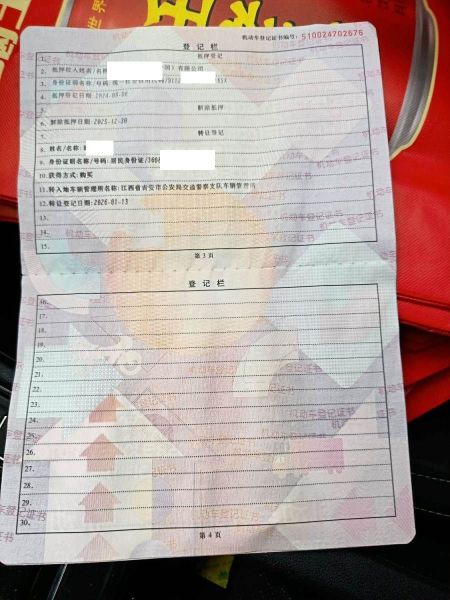 世界
机动车登记证书编号：510024702676
登记栏
1. 抵押登记
2. 抵押权人姓名/名称 ）有限公司
3. 身份证明名称/号码：统一社会信用代码/9112
4. 抵押登记日期：2024-08-06
5. 解除抵押
6. 解除抵押日期：2025-12-30
7. 转让登记
8. 姓名/名称：
9. 身份证明名称/号码：居民身份证/3608
10. 获得方式：购买
11. 转入地车辆管理所名称：江西省吉安市公安局交通警察支队车辆管理所
12. 转让登记日期：2026-01-13
13.
14.
15.
第 3 页
登记栏
16.
17.
18.
19.
20.
21.
22.
23.
24.
25.
26.
27.
28.
29.
30.
第 4 页